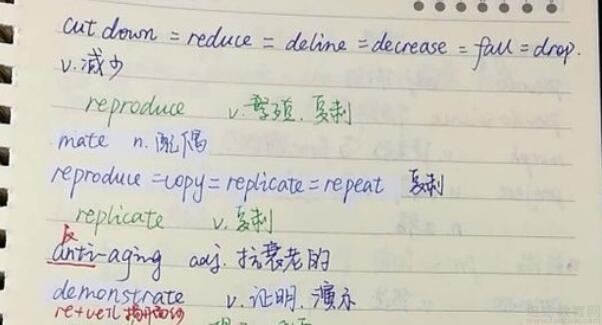 cut down = reduce = deline = decrease = fall = drop.
v. 减少
reproduce v. 繁殖. 复制
mate n. 配偶
reproduce = copy = replicate = repeat 复制
replicate v. 复制
反
anti-aging adj. 抗衰老的
demonstrate v. 证明. 演示
re+veil